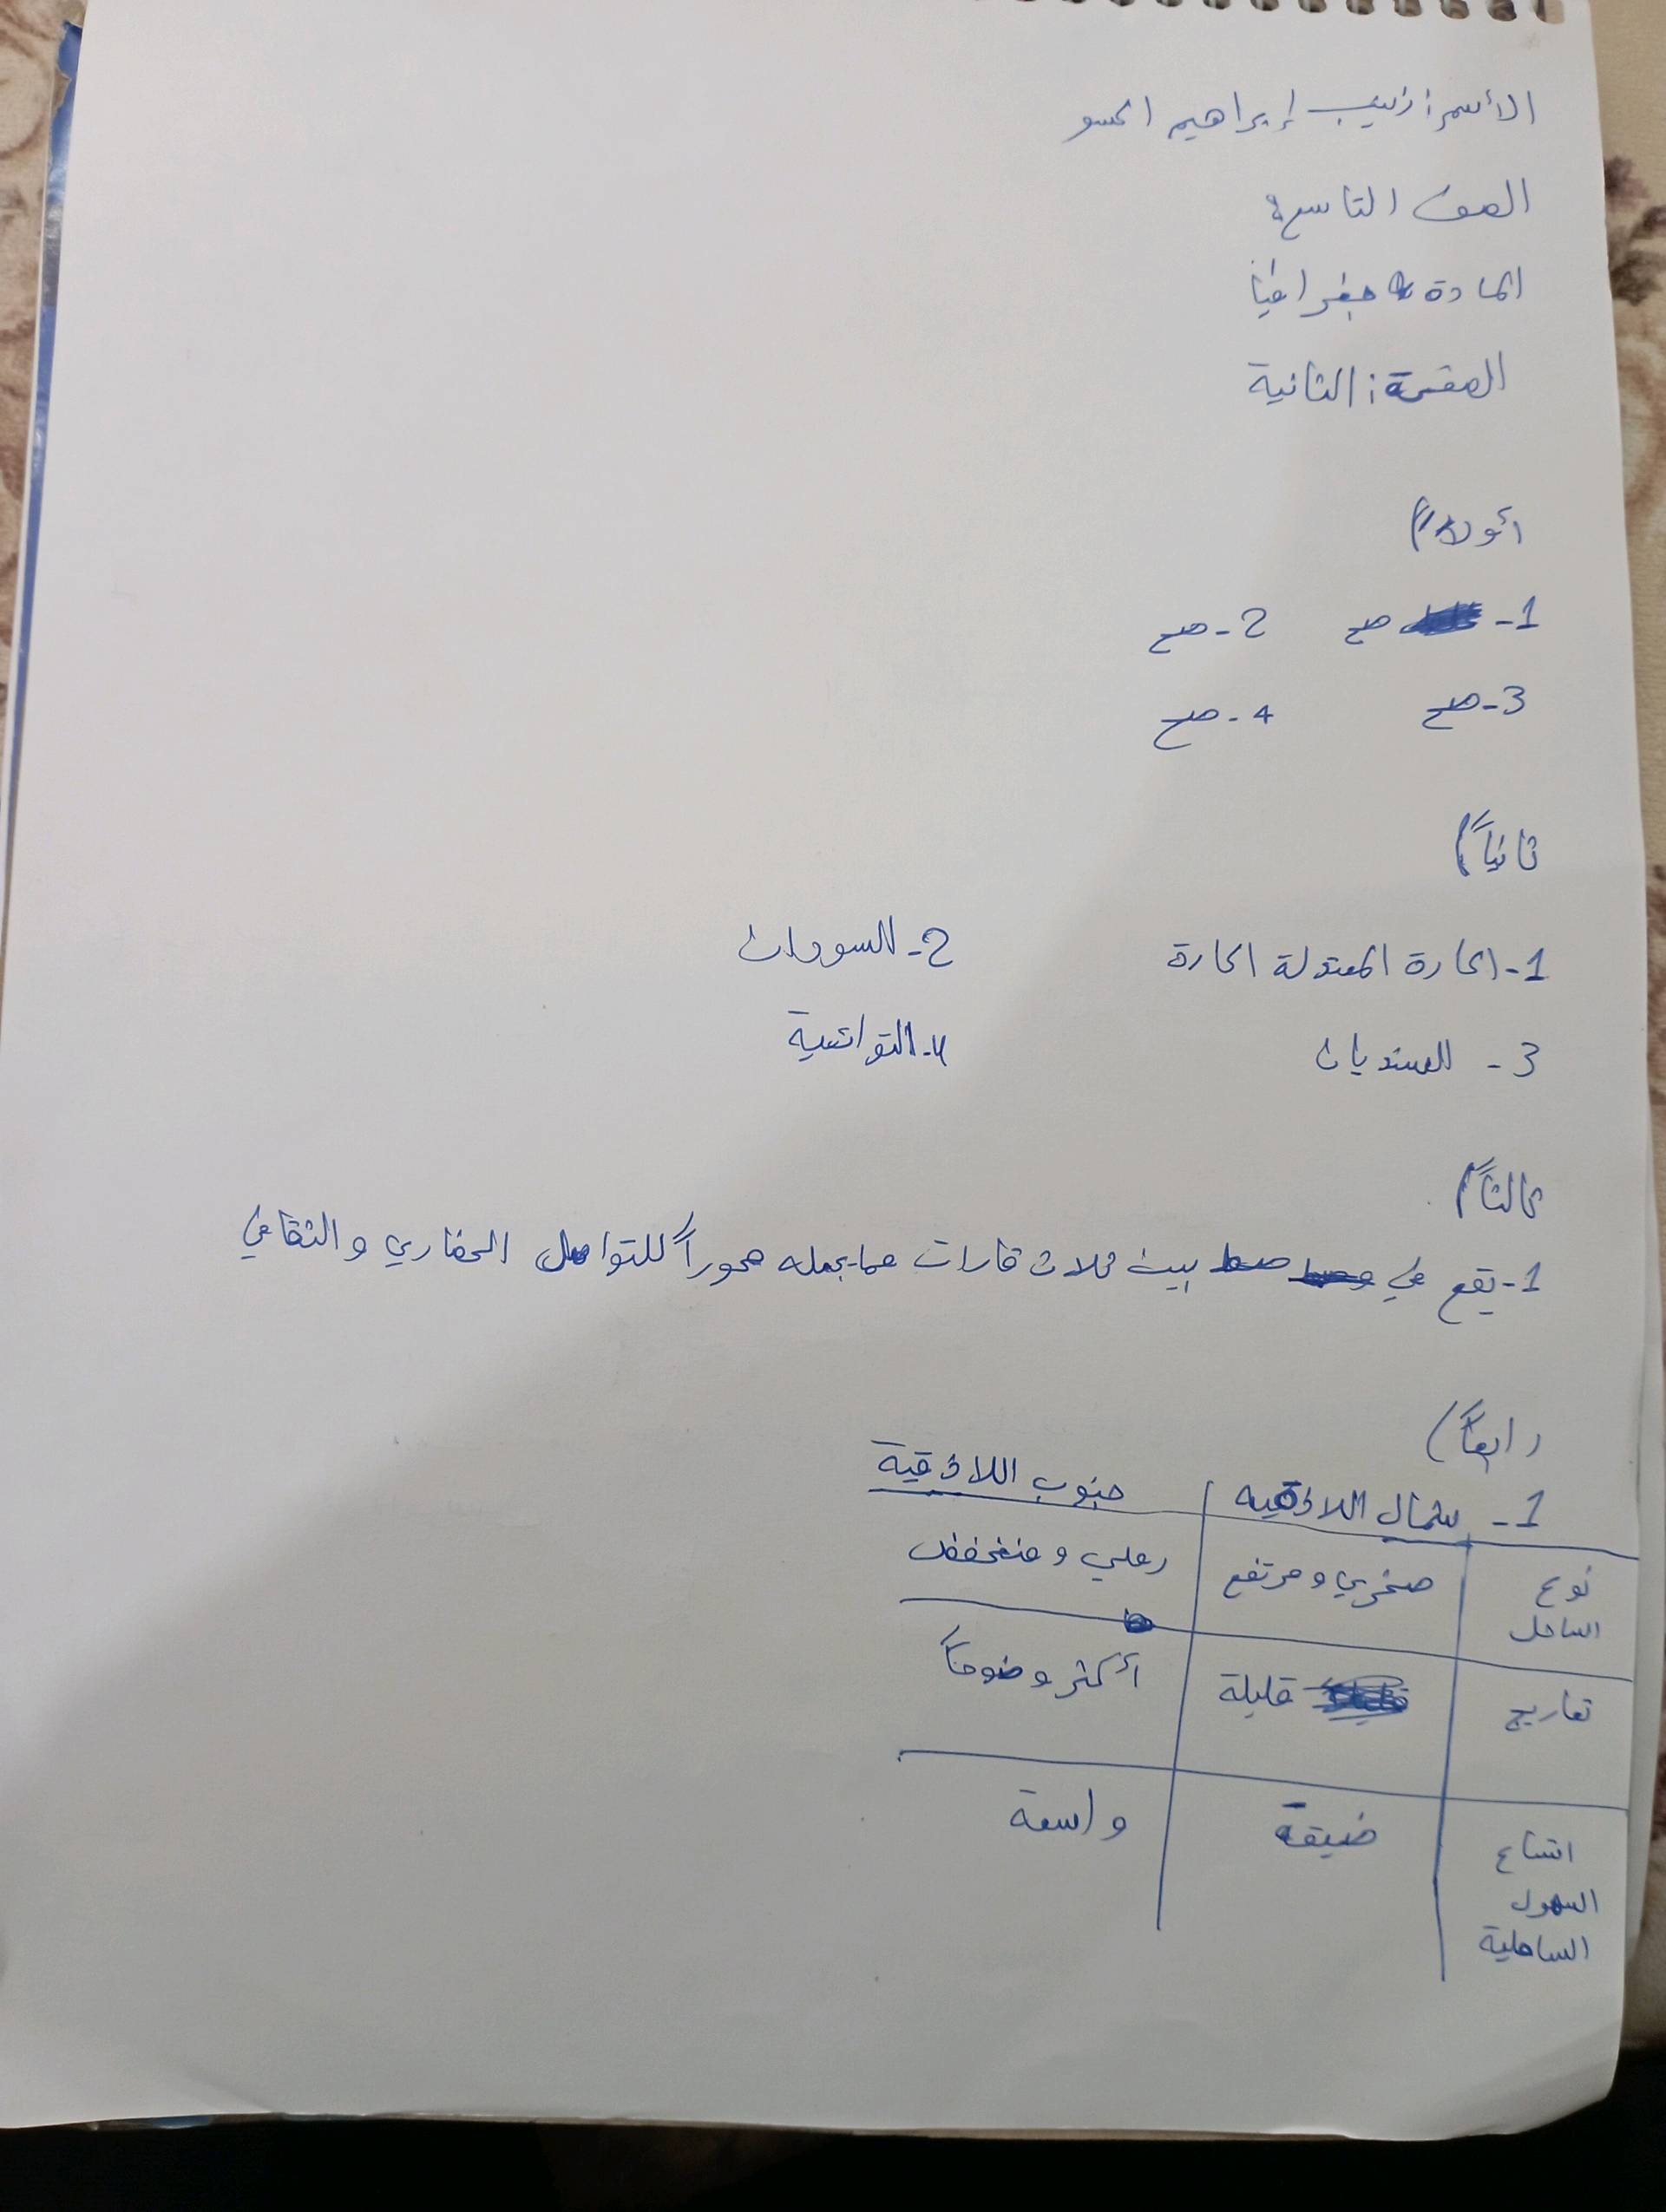 الأسم: زينب إبراهيم الحسو
الصف التاسع
المادة جغرافيا
الصفحة: الثانية
أولاً)
1- صح 2- صح
3- صح 4- صح
ثانياً)
1- الحارة المعتدلة الحارة 2- السودان
3- السنديان 4- التوائمية
ثالثاً)
1- يقع في بين ثلاث قارات مما يجعله محوراً للتواصل الحضاري والثقافي
رابعاً)
1- شمال اللاذقية جنوب اللاذقية
نوع الساحل صخري و مرتفع رملي و منخفض
تعاريج قليلة أكثر وضوحاً
اتساع السهول الساحلية ضيقة واسعة